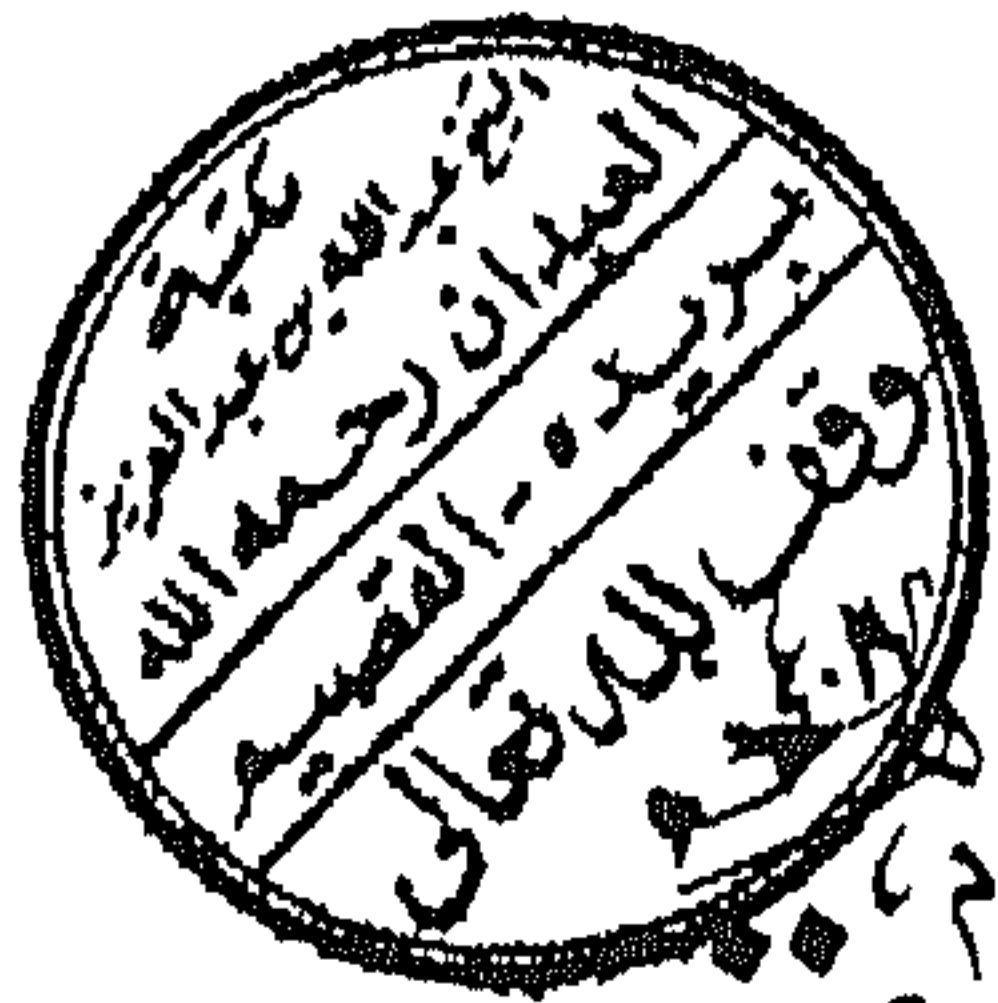 مكتبة
الشيخ عبد الله بن عبد العزيز
العبدان رحمه الله
بريده - القصيم
وقف لله تعالى